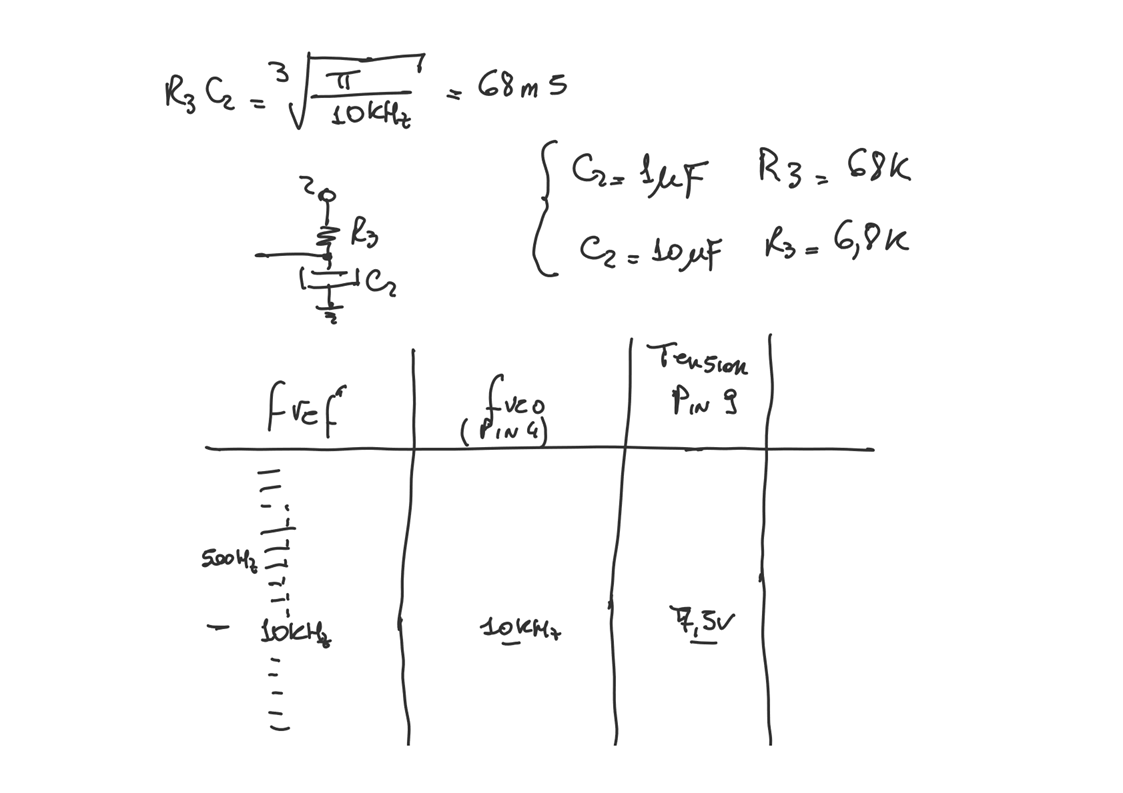 R₃ C₂ = ³√(π / 10KHz) = 68ms
C₂ = 1µF R₃ = 68K
C₂ = 10µF R₃ = 6,8K
2
R₃
C₂
fref
fvco
(PIN 4)
Tension
PIN 9
500Hz
- 10KHz 10KHz 7,5V